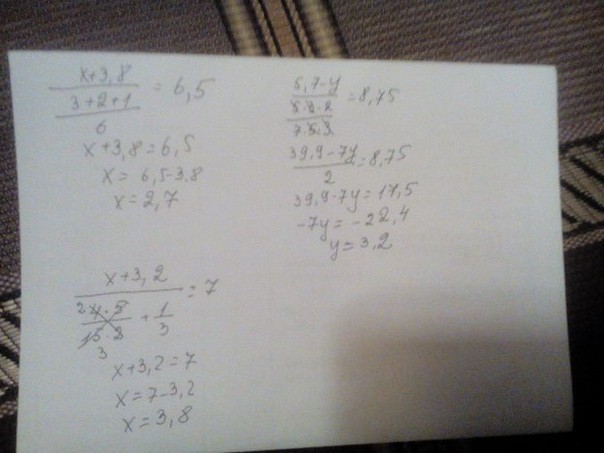 x+3,8
3+2+1 = 6,5
6
x+3,8=6,5
x= 6,5-3.8
x=2,7
5,7-y
5·4·2 =8,75
7·5·3
39,9-7y =8,75
2
39,9-7y=17,5
-7y=-22,4
y=3,2
x+3,2
2 4·5 + 1 =7
15·2 3
3
x+3,2=7
x=7-3,2
x=3,8